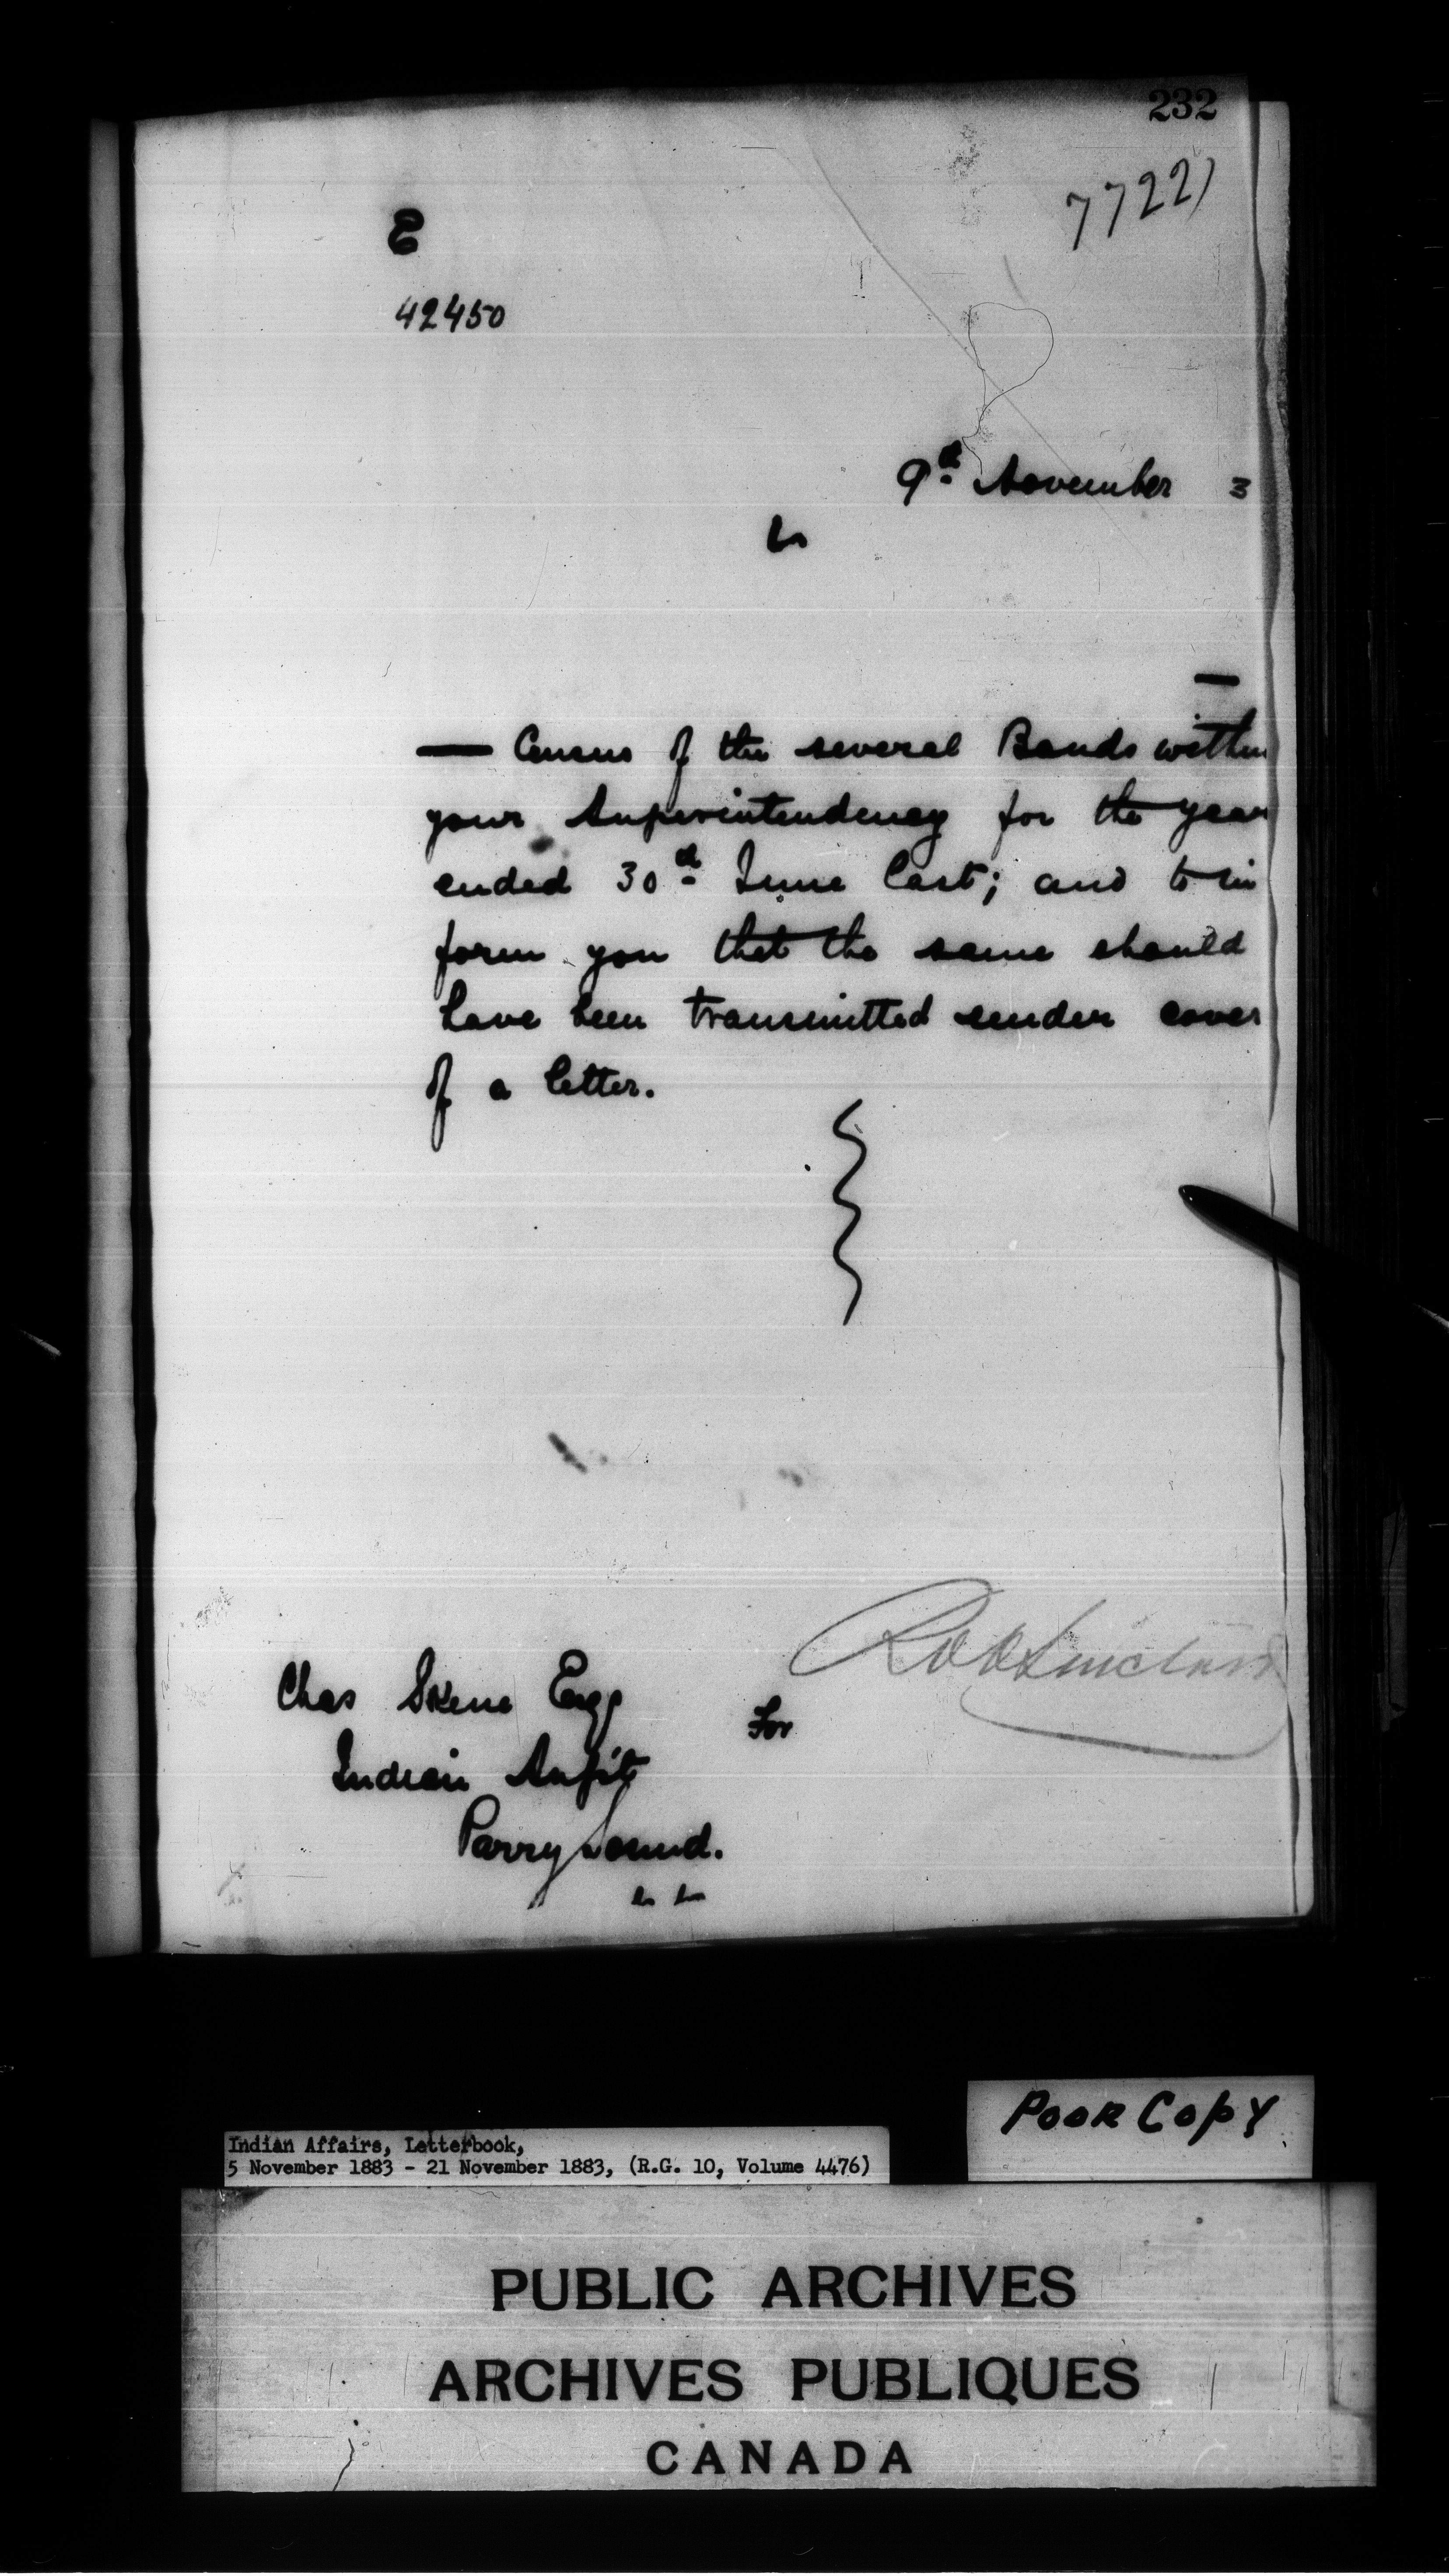 232
7722)
E
42450
9th November 3
— Census of the several Bands within
your Superintendency for the year
ended 30th June last; and to in
form you that the same should
have been transmitted under cover
of a letter.
Sinclair
Chas Skene Esqr
For
Indian Supt
Parry Sound.
Poor Copy
Indian Affairs, Letterbook,
5 November 1883 - 21 November 1883, (R.G. 10, Volume 4476)
PUBLIC ARCHIVES
ARCHIVES PUBLIQUES
CANADA